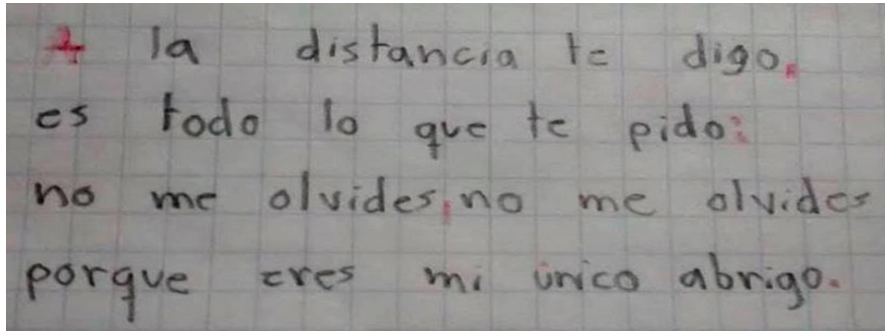 A la distancia te digo,
es todo lo que te pido:
no me olvides, no me olvides
porque eres mi único abrigo.